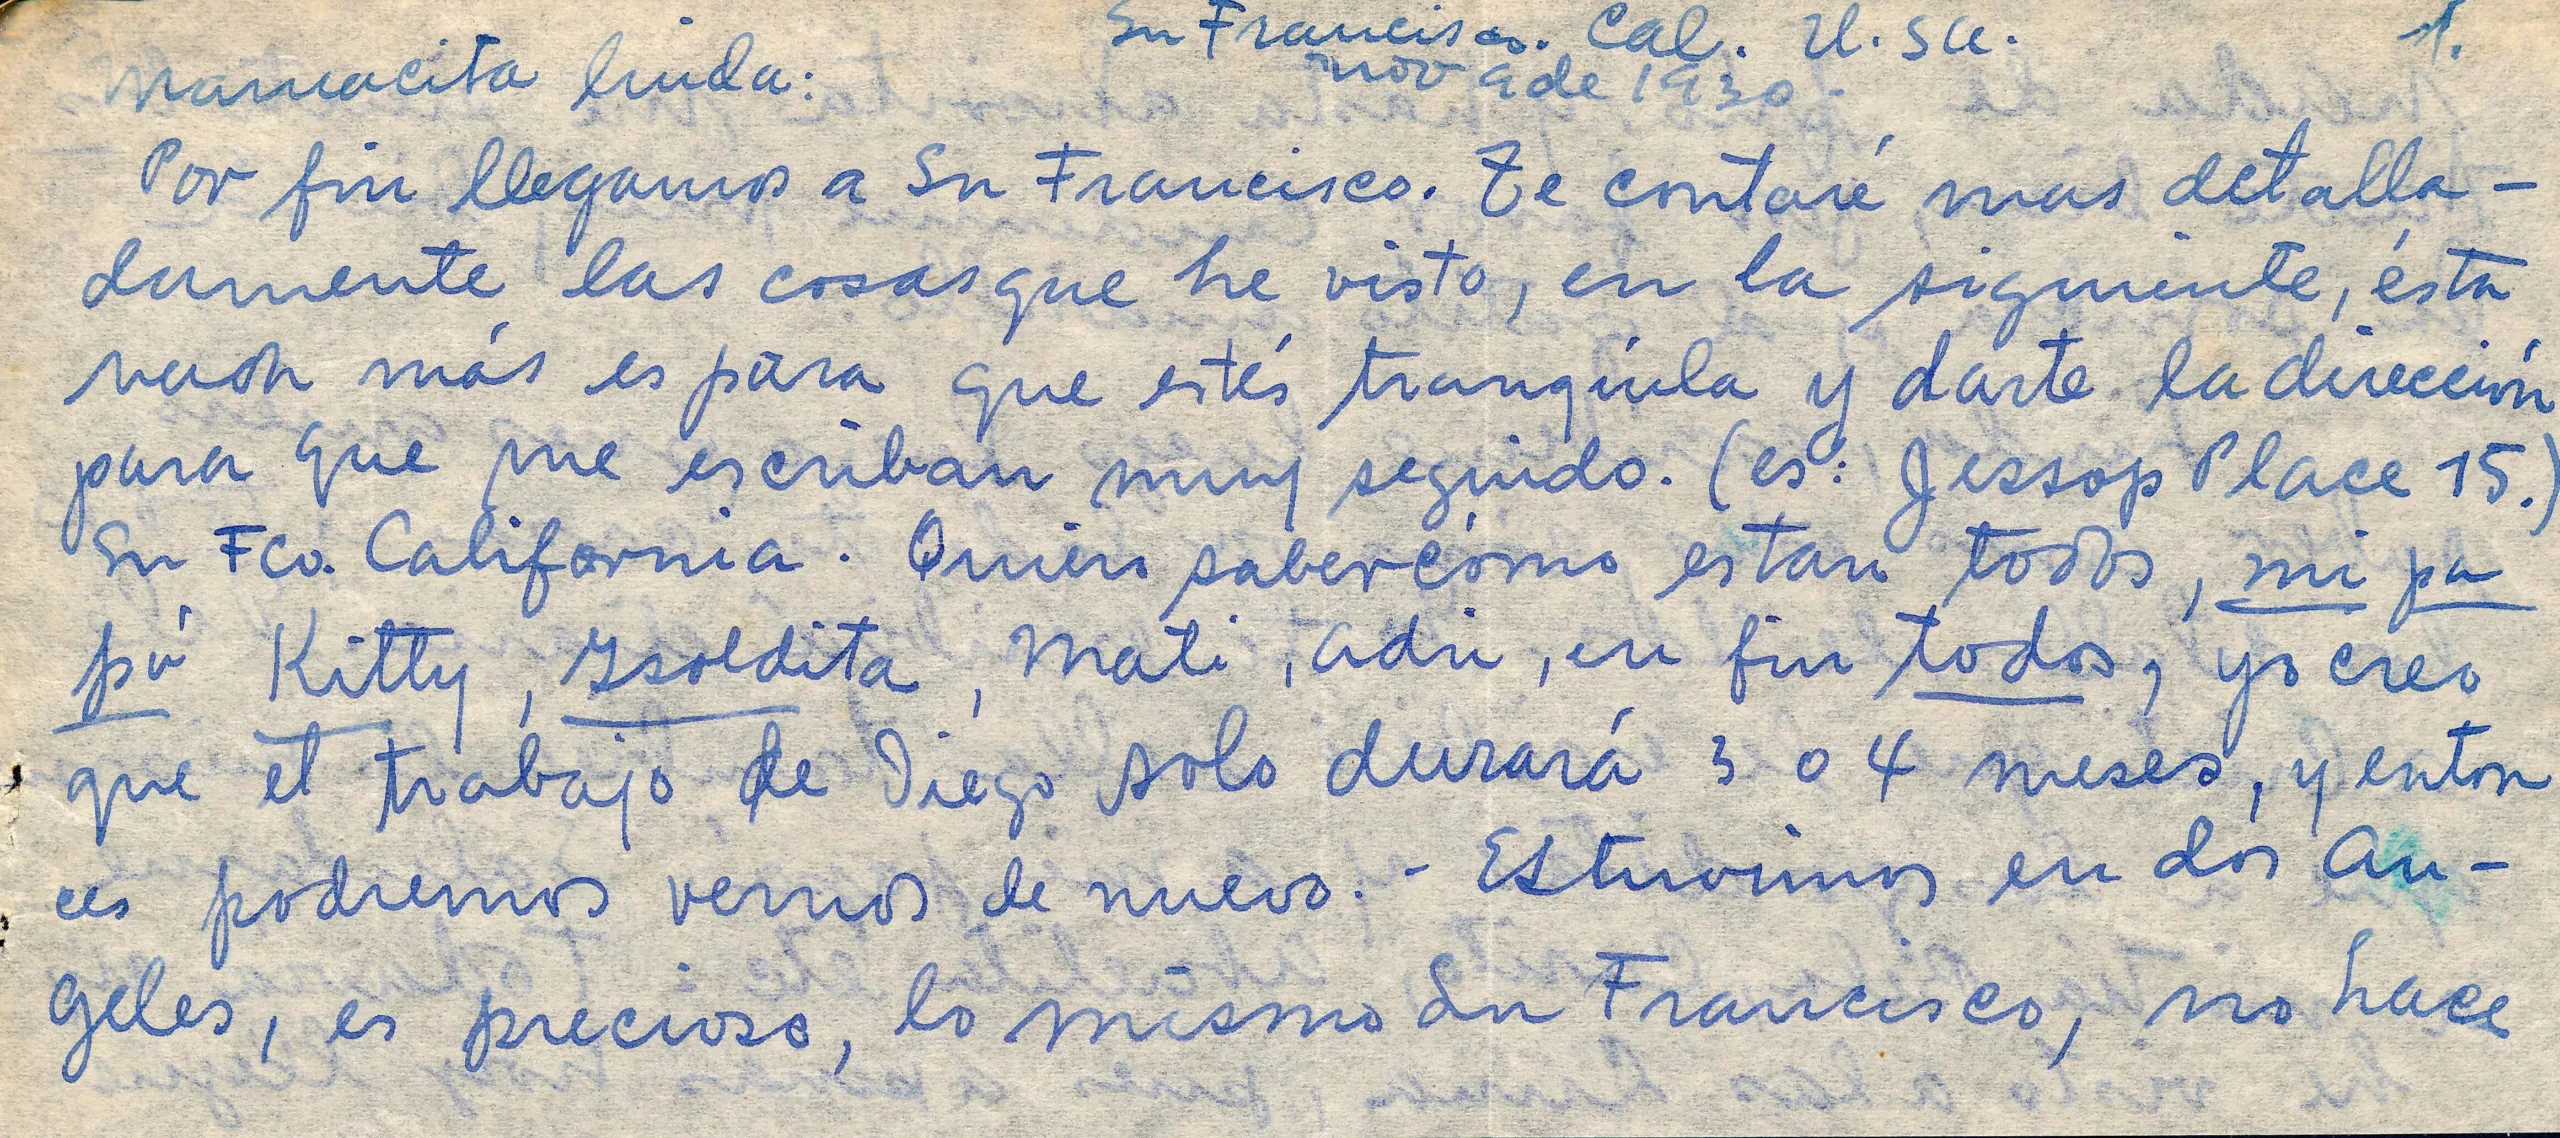 Sn Francisco. Cal. U.SA. 1.
Mamacita linda: nov 9 de 1930.
Por fin llegamos a Sn Francisco. Te contaré mas detalla-
damente las cosas que he visto, en la siguiente, ésta
nada más es para que estés tranquila y darte la dirección
para que me escriban muy seguido. (es: Jessop Place 15.)
Sn Fco. California. Quien saber cómo estan todos, mi pa
pá Kitty, Isoldita, Mati, Adri, en fin todos, yo creo
que el trabajo de Diego solo durará 3 o 4 meses, y enton
ces podremos vernos de nuevo. - Estuvimos en dos An-
geles, es precioso, lo mismo Sn Francisco, no hace